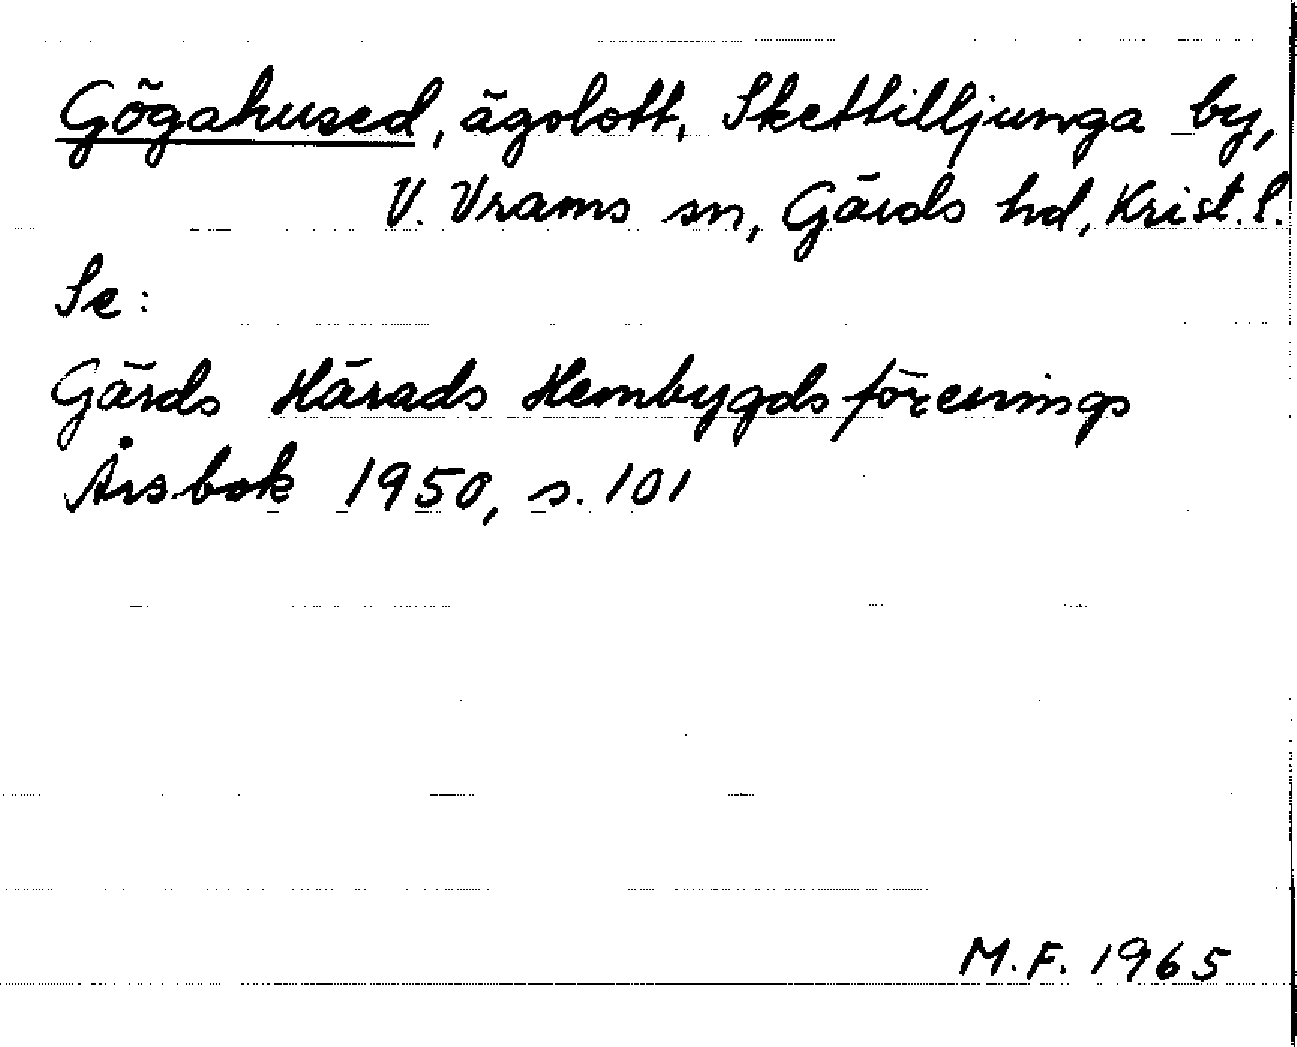 Gögahused, ägolott, Skettilljunga by,
V. Vrams sn, Gärds hd, Krist. l.
Se:
Gärds Härads Hembygdsförenings
Årsbok 1950, s. 101
M.F. 1965